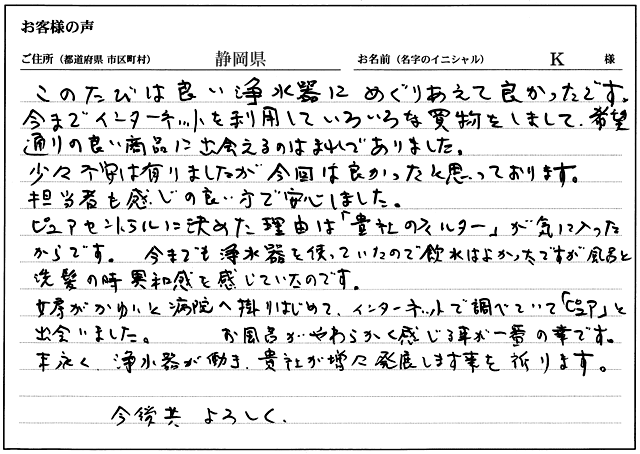 お客様の声
ご住所（都道府県 市区町村） 静岡県 お名前（名字のイニシャル） K 様
このたびは良い浄水器にめぐりあえて良かったです。
今までインターネットを利用していろいろな買物をしまして、希望
通りの良い商品に出会えるのはまれでありました。
少々不安は有りましたが今回は良かったと思っております。
担当者も感じの良い方で安心しました。
ピュアセントラルに決めた理由は「貴社のフィルター」が気に入った
からです。 今までも浄水器を使っていたので飲水はよかったですが風呂と
洗髪の時異和感を感じていたのです。
女房がかゆいと病院へ掛りはじめて、インターネットで調べていて「ピュア」と
出会いました。 お風呂がやわらかく感じる事が一番の幸です。
末永く、浄水器が働き、貴社が増々発展します事を祈ります。
今後共 よろしく、